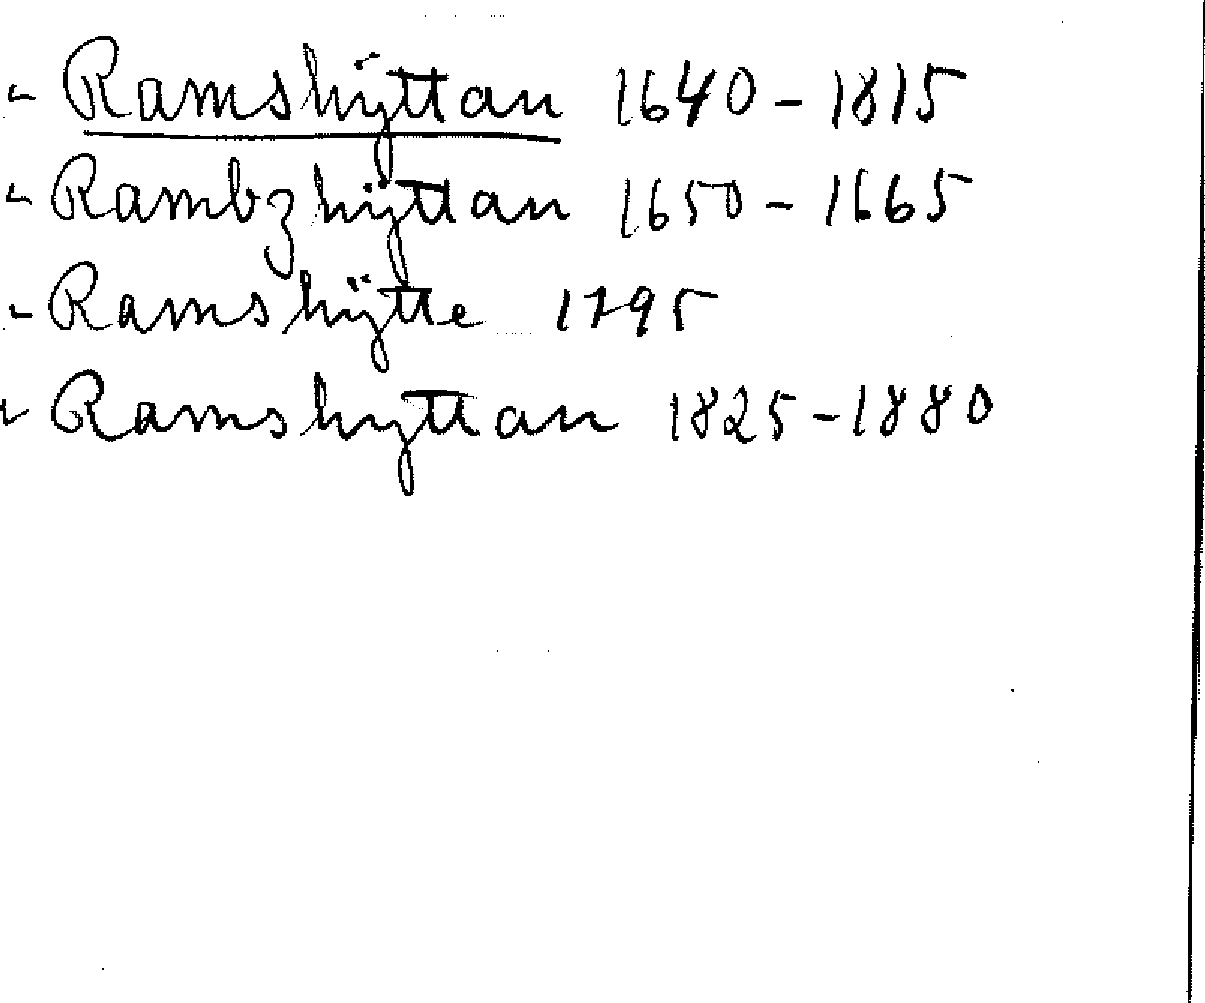 - Ramshÿttan 1640-1815
- Rambzhÿttan 1650-1665
- Ramshÿtte 1795
- Ramshyttan 1825-1880